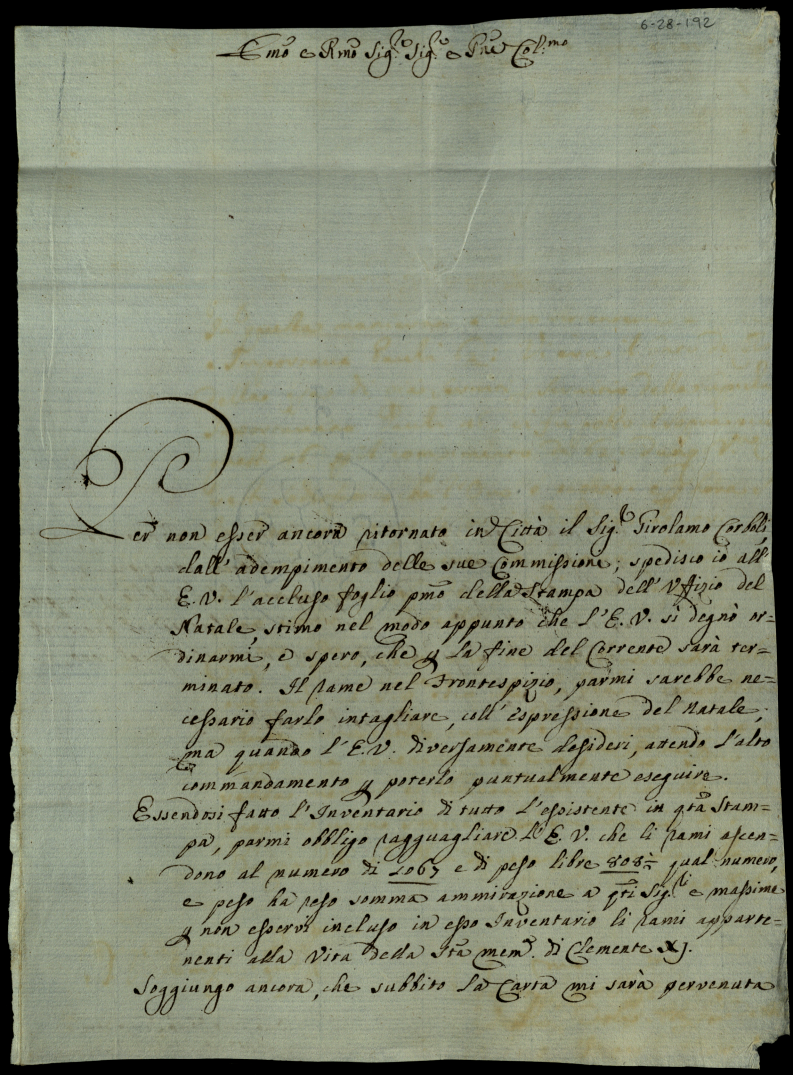 6-28-192
Emo e Rmo Sig.e Sig.e e Pne Col.mo
Per non esser ancora ritornato in Città il Sig.e Girolamo Corboli
dall' adempimento delle sue Commissione; spedisco io all'
E. V. l'accluso foglio pmo della Stampa dell' Vffizio del
Natale, stimo nel modo appunto che l'E. V. si degnò or=
dinarmi, e spero, che p la fine del Corrente sarà ter=
minato. Il rame nel Frontespizio, parmi sarebbe ne=
cessario farlo intagliare, coll' espressione del Natale;
ma quando l'E. V. diversamente desideri, attendo l'alto
commandamento p poterlo puntualmente eseguire.
Essendosi fatto l'Inventario di tutto l'essistente in qta Stam=
pa, parmi obbligo ragguagliare l'E. V. che li rami ascen=
dono al numero di 2067 e di peso libre 808½ qual numero,
e peso ha reso somma ammirazione a qti Sig.ri e massime
p non esservi incluso in esso Inventario li rami apparte=
nenti alla Vita della Sta mem. di Clemente XJ.
Soggiungo ancora, che subbito la Carta mi sarà pervenuta